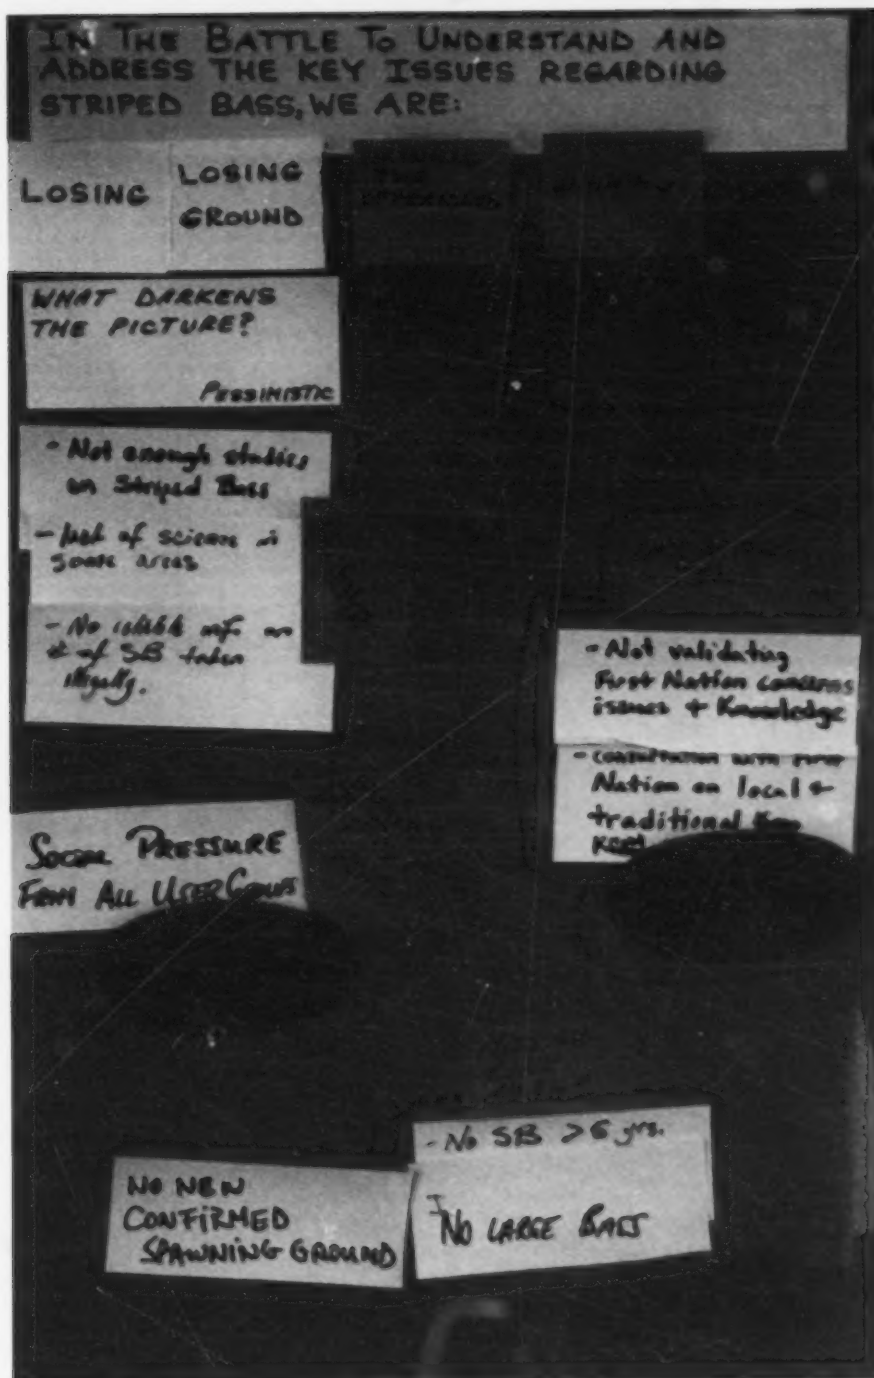 IN THE BATTLE TO UNDERSTAND AND
ADDRESS THE KEY ISSUES REGARDING
STRIPED BASS, WE ARE:
LOSING
LOSING
GROUND
THE
WHAT DARKENS
THE PICTURE?
PESSIMISTIC
- Not enough studies
on Striped Bass
- lack of science in
some areas
- No info on
# of SB taken
illegally.
- Not validating
First Nation concerns
issues + Knowledge
- consultation with First
Nation on local +
traditional
SOCIAL PRESSURE
FROM ALL USER GROUPS
- No SB > 6 yrs.
NO LARGE BASS
NO NEW
CONFIRMED
SPAWNING GROUND